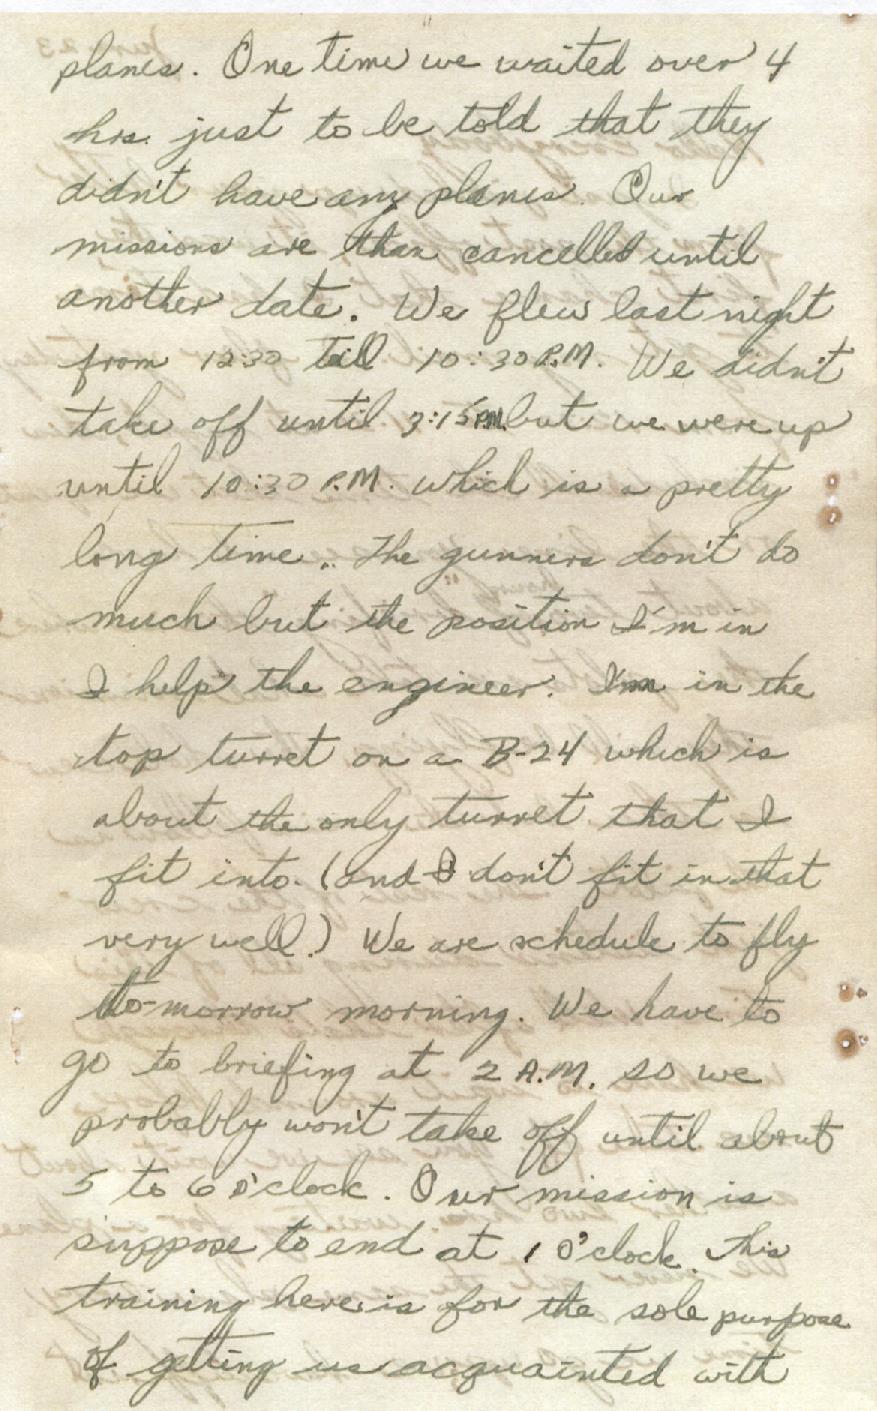 planes. One time we waited over 4
hrs. just to be told that they
didn't have any planes. Our
missions are than cancelled until
another date. We flew last night
from 12:30 till 10:30 P.M. We didn't
take off until 3:15 PM. but we were up
until 10:30 P.M. which is a pretty
long time. The gunners don't do
much but the position I'm in
I help the engineer. I'm in the
top turret on a B-24 which is
about the only turret that I
fit into. (and I don't fit in that
very well.) We are schedule to fly
to-morrow morning. We have to
go to briefing at 2 A.M. so we
probably won't take off until about
5 to 6 o'clock. Our mission is
suppose to end at 1 O'clock. This
training here is for the sole purpose
of getting us acquainted with